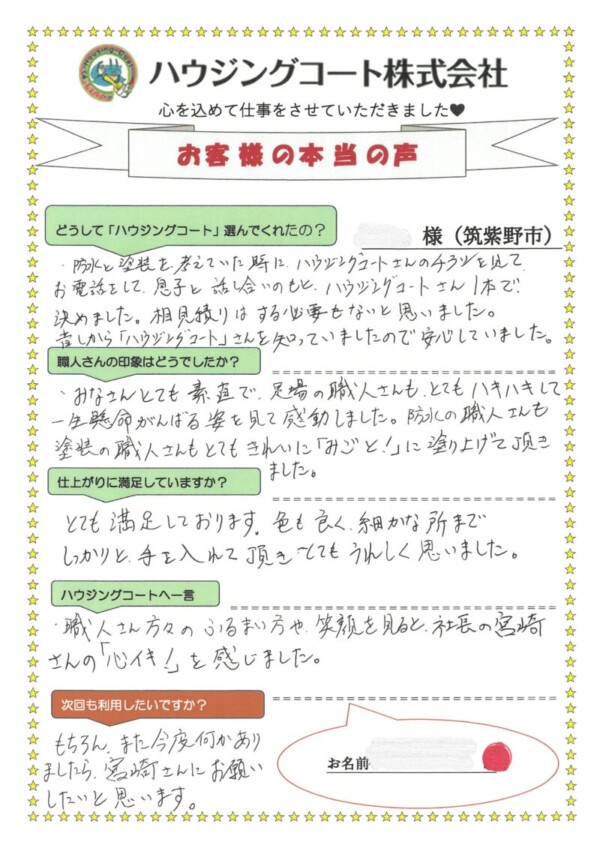 ハウジングコート株式会社
心を込めて仕事をさせていただきました♥
お客様の本当の声
どうして「ハウジングコート」選んでくれたの？
様（筑紫野市）
・防水と塗装を考えていた時に、ハウジングコートさんのチラシを見て
お電話をして、息子と話し合いのもと、ハウジングコートさん1本で
決めました。相見積りはする必要もないと思いました。
昔しから「ハウジングコート」さんを知っていましたので安心していました。
職人さんの印象はどうでしたか？
・みなさんとても素直で、足場の職人さんも、とてもハキハキして
一生懸命がんばる姿を見て感動しました。防水の職人さんも
塗装の職人さんもとてもきれいに「みごと！」に塗り上げて頂き
ました。
仕上がりに満足していますか？
とても満足しております。色も良く、細かな所まで
しっかりと、手を入れて頂きとてもうれしく思いました。
ハウジングコートへ一言
・職人さん方々のふるまい方や、笑顔を見ると、社長の宮崎
さんの「心イキ！」を感じました。
次回も利用したいですか？
もちろん、また今度何かあり
ましたら、宮崎さんにお願い
したいと思います。
お名前